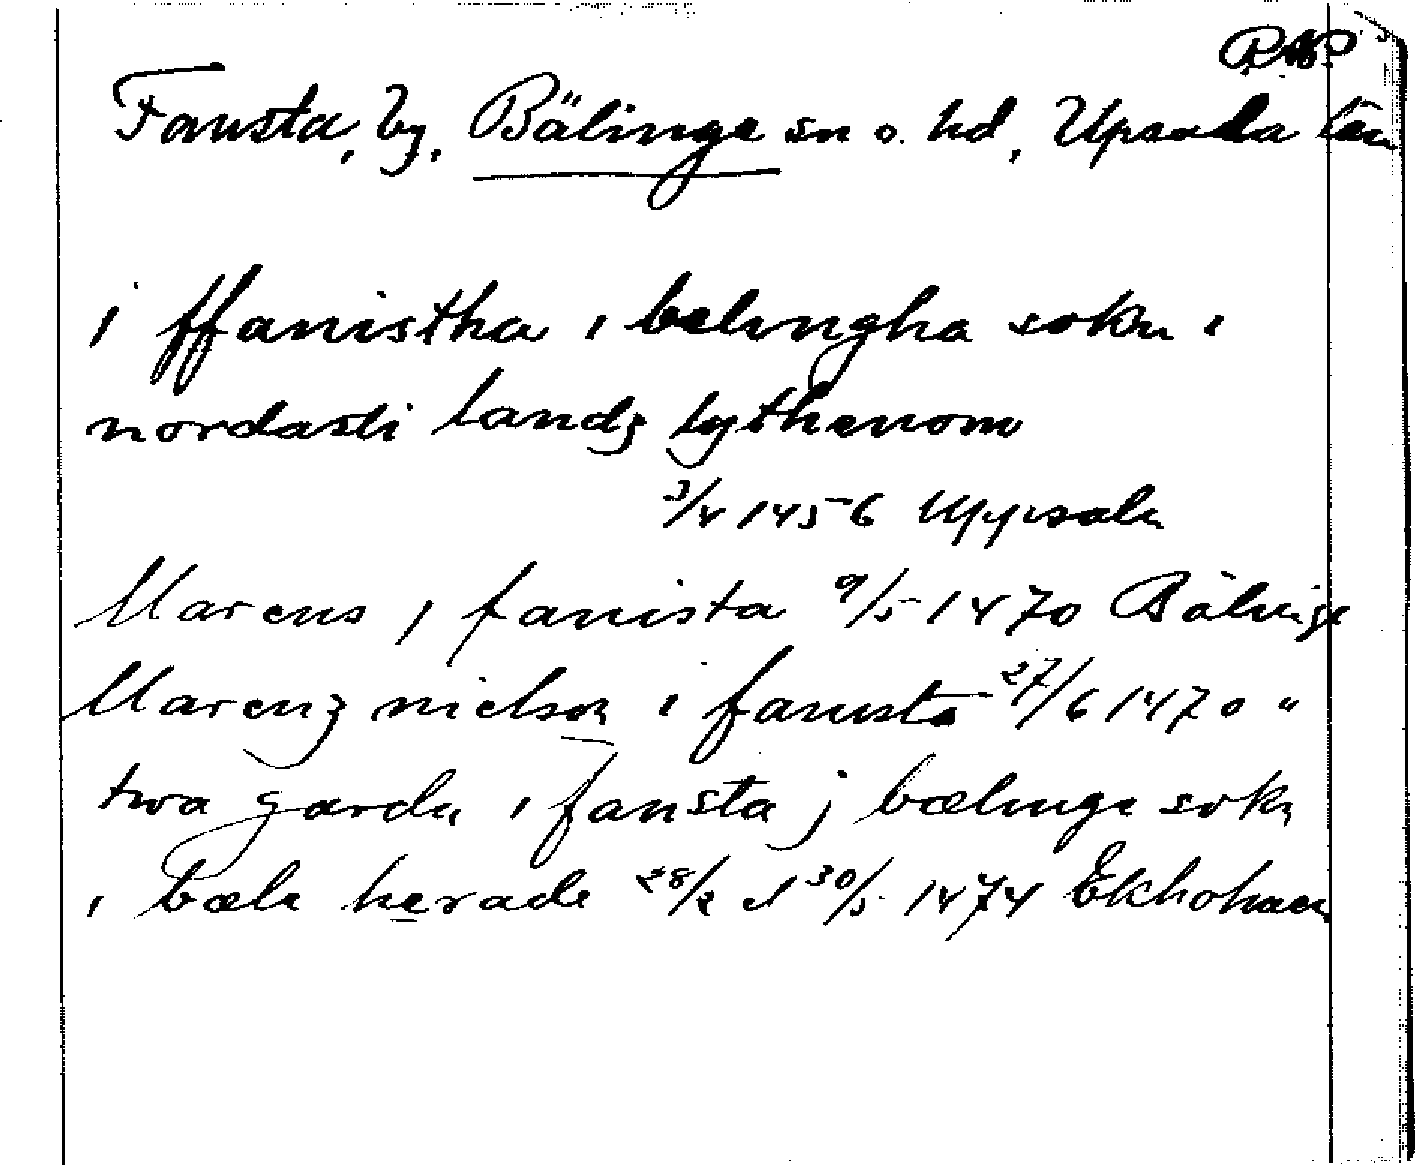 RAP
Fansta, by, Bälinge sn o. hd, Upsala län
i ffanistha i belingha sokn i
nordasti landz lythenom
3/4 1456 Uppsala
Marcus i fanista 9/5 1470 Bälinge
Marcuz nielson i fanista 27/6 1470 "
twa garda i fansta j bælinge sokn
i bæle herade 28/2 el 30/5 1474 Ekholmen